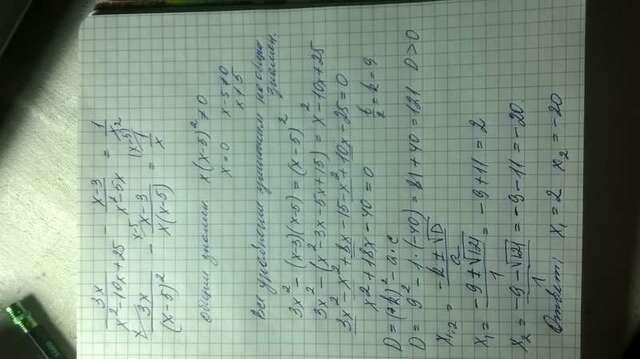 3x / x²-10x+25 - x-3 / x²-5x = 1 / x
x\ 3x / (x-5)² - x-5\ x-3 / x(x-5) = (x-5)²\ 1 / x
Общий знамен x(x-5)² ≠ 0
x = 0 x-5≠0
x≠5
Все уравнение умножим на общий
знамен.
3x² - (x-3)(x-5) = (x-5)²
3x² - (x² 3x - 5x + 15) = x² - 10x + 25
3x² - x² + 8x - 15 - x² + 10x - 25 = 0
x² + 18x - 40 = 0 b/2 = k = 9
D = (k)² - a·c
D = 9² - 1·(-40) = 81 + 40 = 121 D > 0
x₁,₂ = -k ± √D / a
x₁ = -9 + √121 / 1 = -9 + 11 = 2
x₂ = -9 - √121 / 1 = -9 - 11 = -20
Ответ: x₁ = 2 x₂ = -20